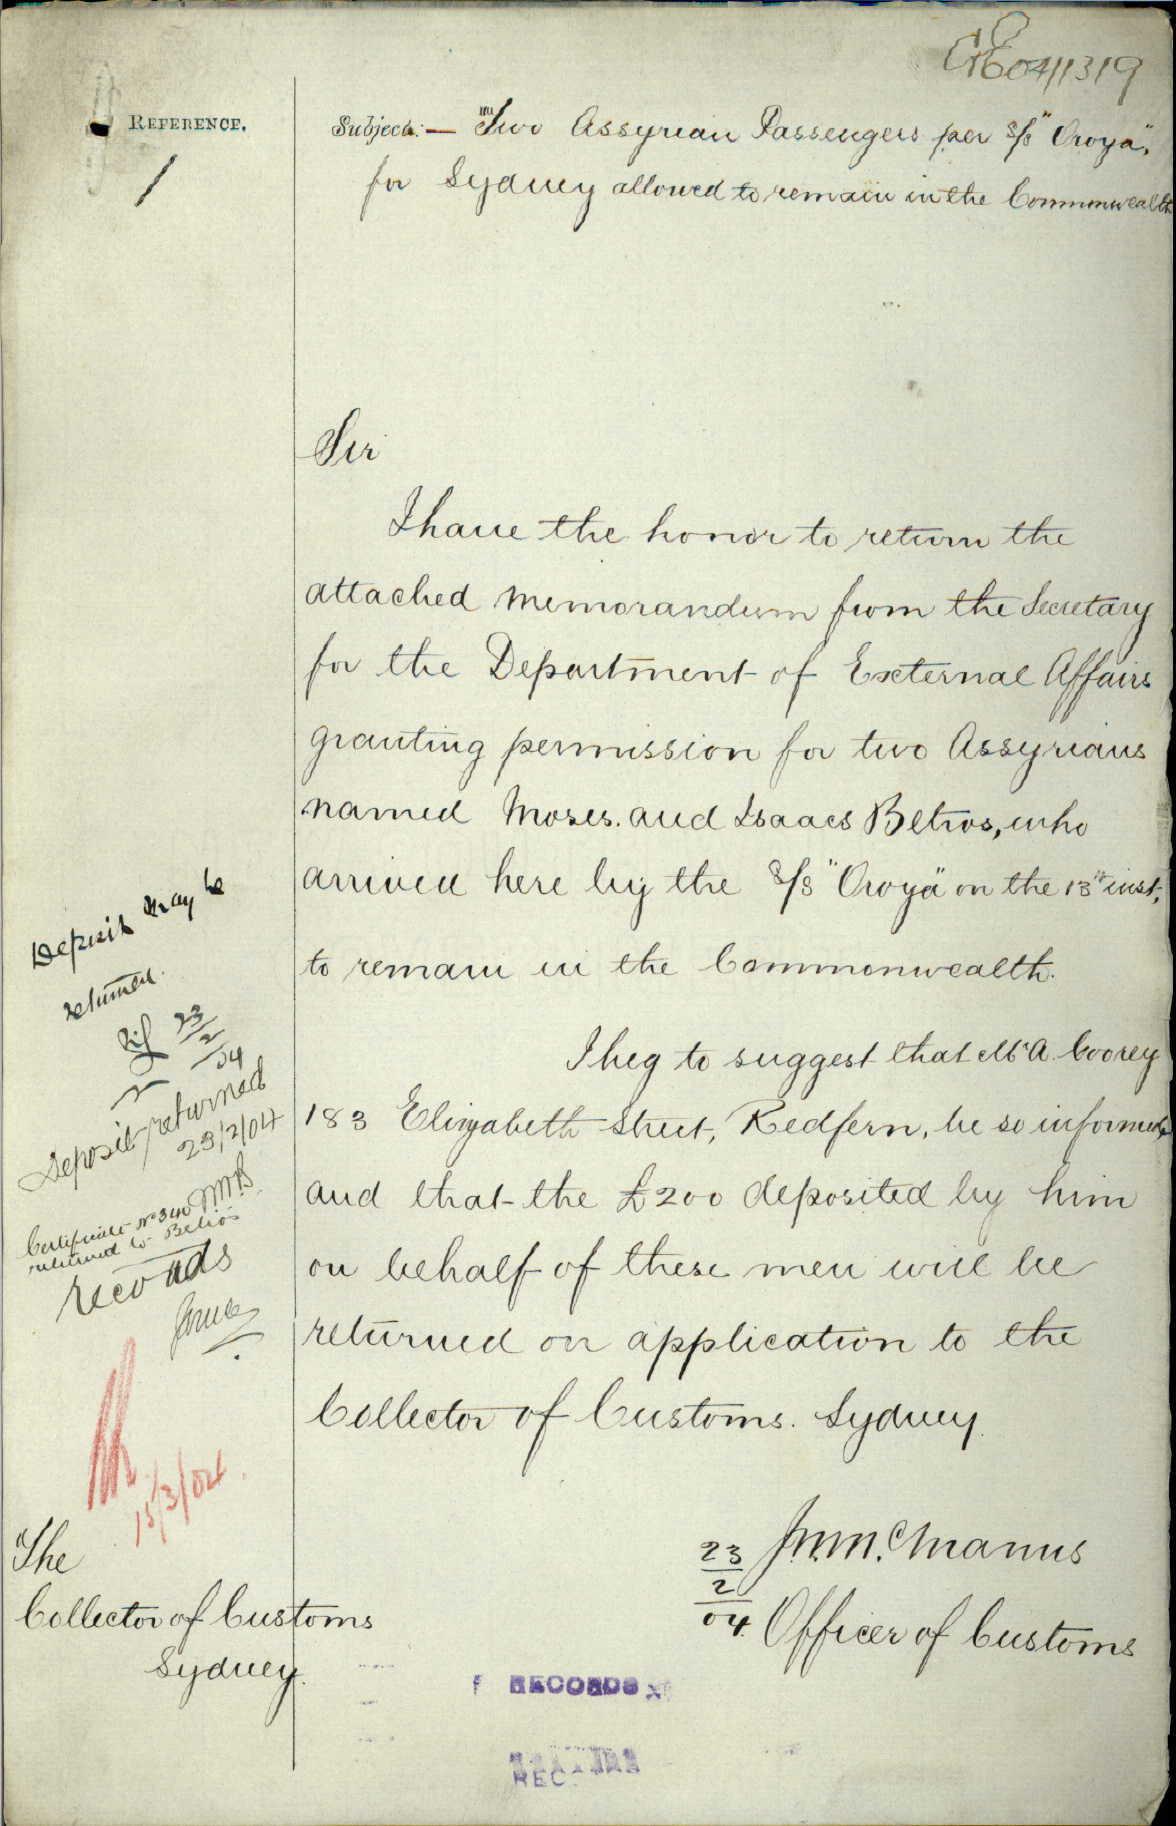 C&E04/1319
REFERENCE.
Subject:— Two Assyrian Passengers per S/S "Oroya",
for Sydney allowed to remain in the Commonwealth
Sir
I have the honor to return the
attached memorandum from the Secretary
for the Department of External Affairs
granting permission for two Assyrians
named Moses. and Isaacs Betros, who
arrived here by the S/S "Oroya" on the 13th inst,
to remain in the Commonwealth.
I beg to suggest that Mr A. Coorey
183 Elizabeth Street, Redfern, be so informed,
and that the £200 deposited by him
on behalf of these men will be
returned on application to the
Collector of Customs. Sydney.
23/2/04. J.M.McManus
Officer of Customs
Deposit may be
returned.
23/2/04
Deposit returned
23/2/04
Certificate No 340
returned to Betros
Records
15/3/04.
The
Collector of Customs
Sydney.
RECORDS
REC.